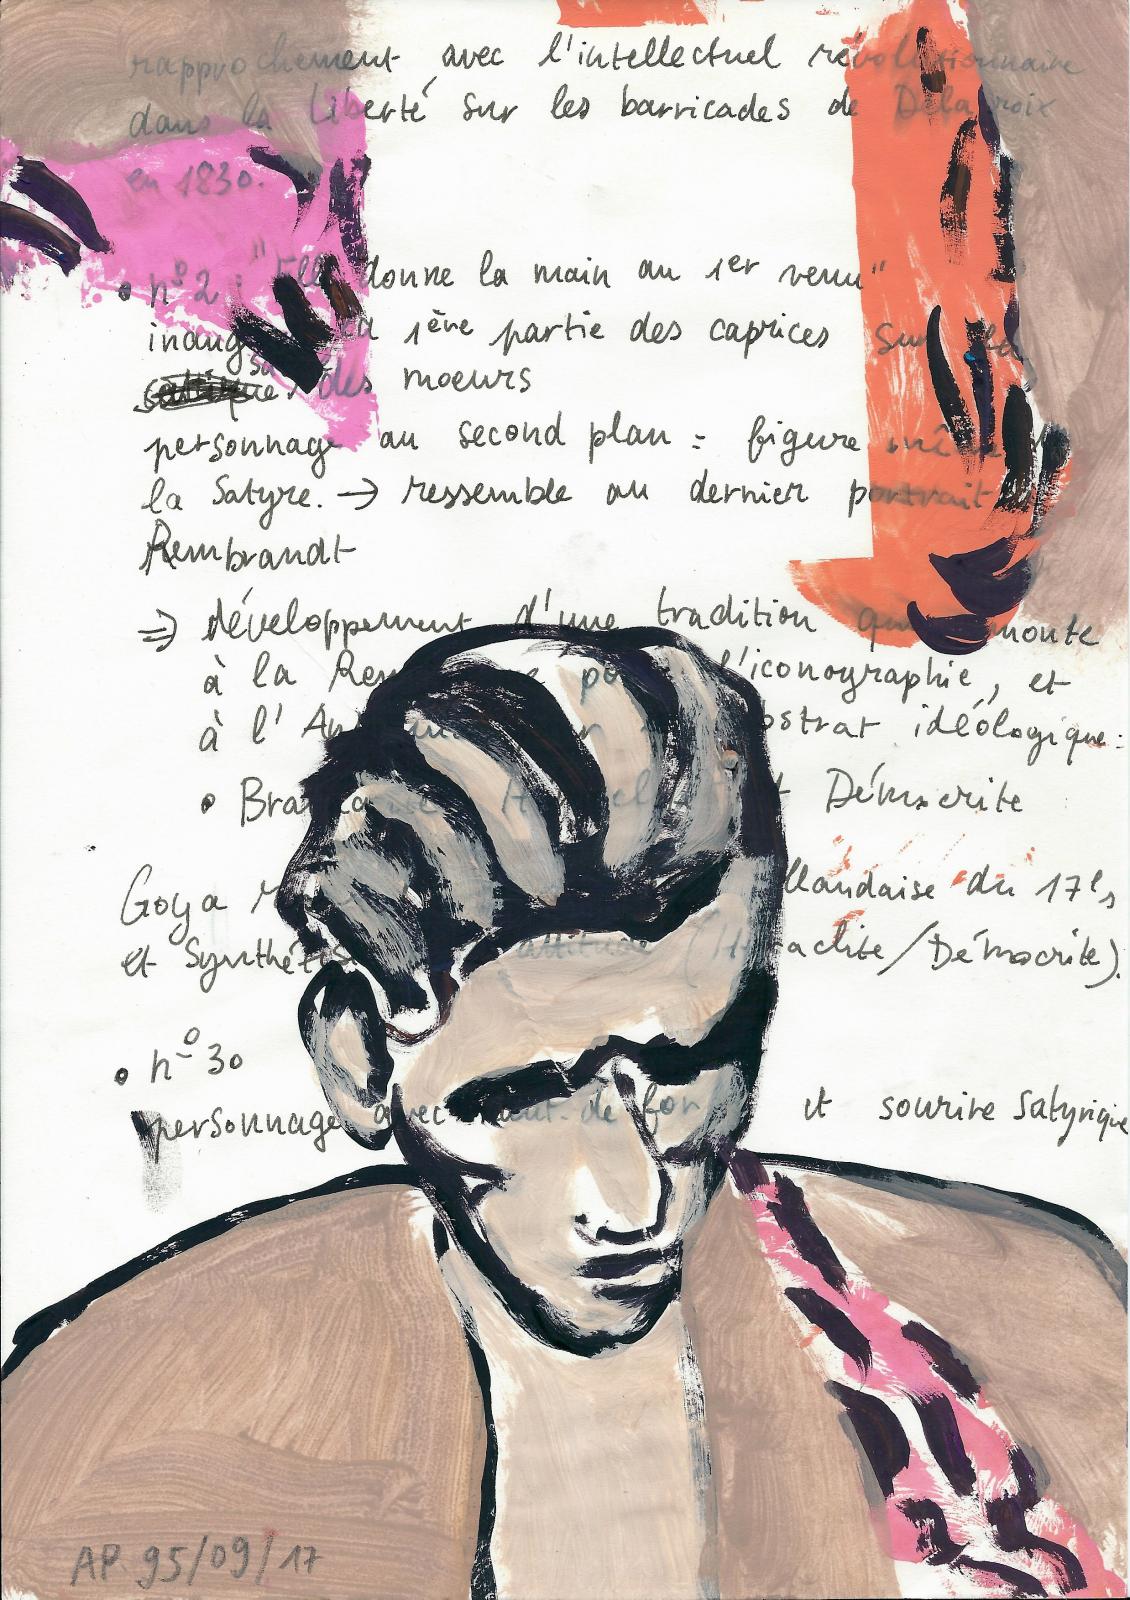 rapprochement avec l'intellectuel révolutionnaire
dans la Liberté sur les barricades de Delacroix
en 1830.
• n° 2 : "Elle donne la main au 1er venu"
inaug a 1ère partie des caprices sur la
sa des moeurs
personnage au second plan = figure même
la Satyre. → ressemble au dernier portrait
Rembrandt
⇒ développement d'une tradition qui monte
à la Ren e po l'iconographie, et
à l'An strat idéologique :
• Bra t Démocrite
Goya llandaise du 17e s
et Synthétis attitude (H aclite/Démocrite).
• n° 30
personnage avec haut-de-for et sourire satyrique
AP. 95/09/17